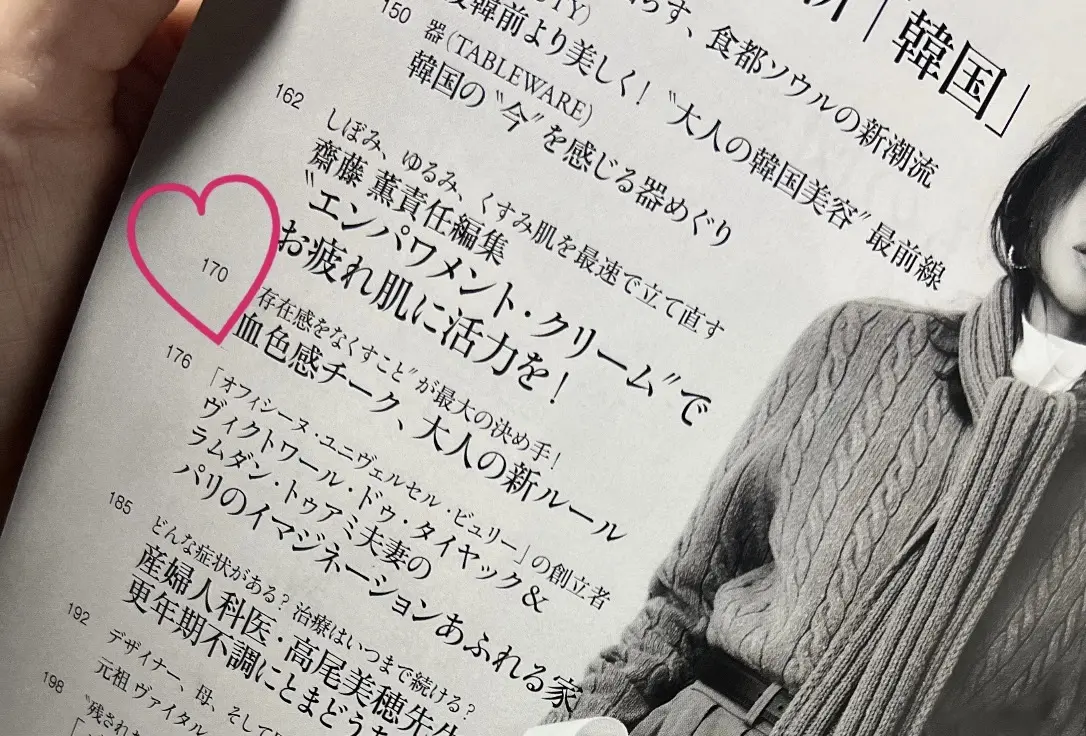 「韓国」
らす、食都ソウルの新潮流
韓前より美しく！“大人の韓国美容”最前線
150
器(TABLEWARE)
韓国の“今”を感じる器めぐり
162
しぼみ、ゆるみ、くすみ肌を最速で立て直す
齋藤 薫責任編集
“エンパワメント・クリーム”で
お疲れ肌に活力を！
170
存在感をなくすこと”が最大の決め手！
血色感チーク、大人の新ルール
176
「オフィシーヌ・ユニヴェルセル・ビュリー」の創立者
ヴィクトワール・ドゥ・タイヤック&
ラムダン・トゥアミ夫妻の
パリのイマジネーションあふれる家
185
どんな症状がある？治療はいつまで続ける？
産婦人科医・高尾美穂先生
更年期不調にとまどう
192
デザイナー、母、そして
元祖 ヴァイタル
198
“残され